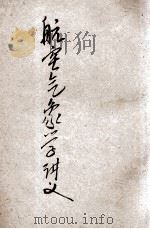 航空气象学讲义
mtoou.info